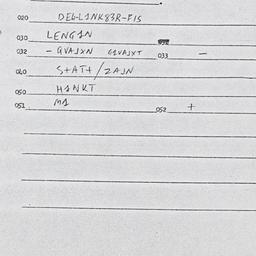 020 DEG-L1NK83R-F1S
030 LENG1N
032 - GVAJXN G1VAJXT 033 -
040 S+AT+/ZAJN
050 H1NKT
051 M1 052 +